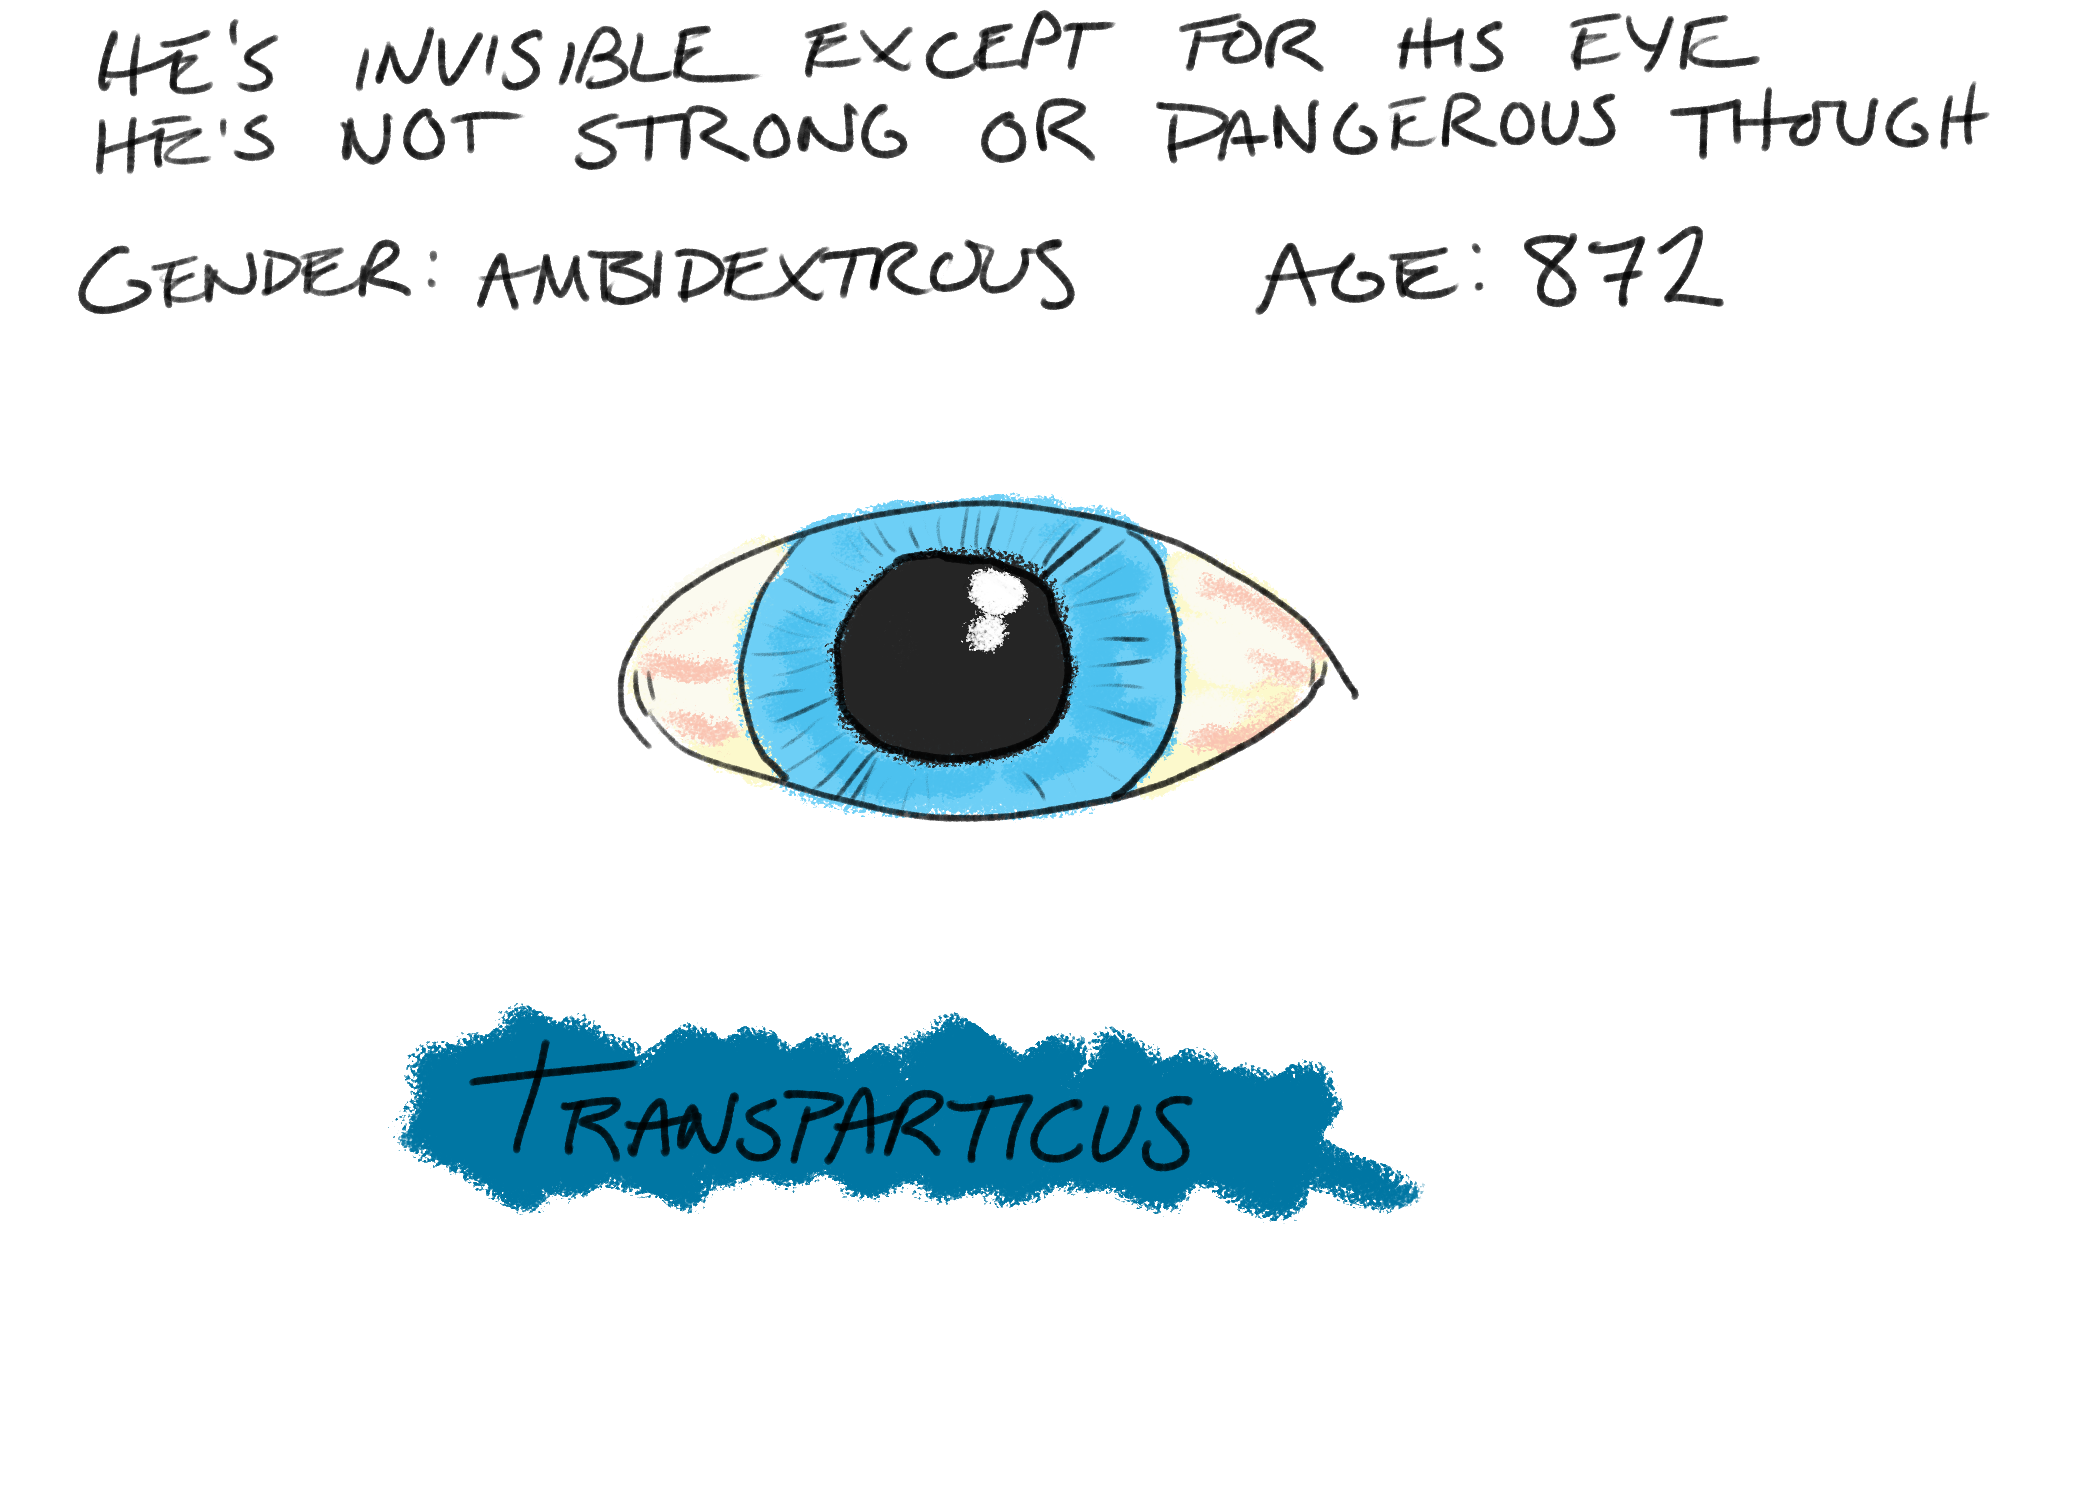 HE'S INVISIBLE EXCEPT FOR HIS EYE
HE'S NOT STRONG OR DANGEROUS THOUGH
GENDER: AMBIDEXTROUS AGE: 872
TRANSPARTICUS